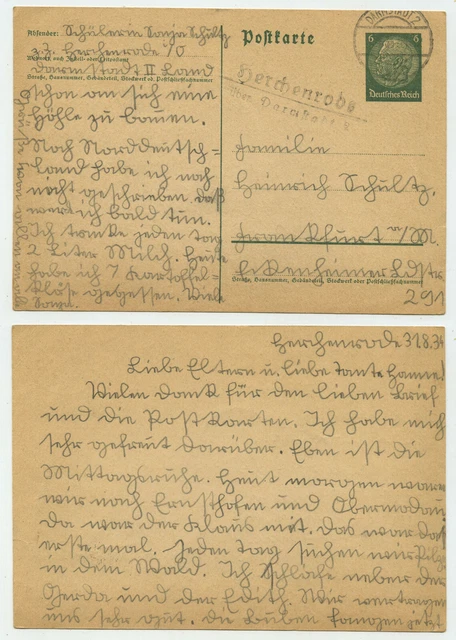 Absender: Schülerin Sonja Schultz
z.Z. Herchenrode /O
Wohnort, auch Zustell- oder Leitpostamt
Darmstadt II Land
Straße, Hausnummer, Gebäudeteil, Stockwerk od. Postschließfachnummer
schon am sich eine
Höhle zu bauen.
Nach Norddeutsch-
land habe ich noch
nicht geschrieben, daß
werd ich bald tun.
Ich trinke jeden tag
2 Liter Milch. Heute
habe ich 7 Kartoffel-
klöse gegessen. Viele
Sonja.
Postkarte
DARMSTADT 2
6 6
Deutsches Reich
Herchenrode
über Darmstadt 2
Familie
Heinrich Schultz.
Frankfurt a/M.
Eckenheimer Ldstr.
Straße, Hausnummer, Gebäudeteil, Stockwerk oder Postschließfachnummer
291
Herchenrode 31.8.34
Liebe Eltern u. liebe Tante Hanne!
Vielen Dank für den lieben Brief
und die Postkarten. Ich habe mich
sehr gefreut darüber. Eben ist die
Mittagsruhe. Heut morgen waren
wir nach Ernsthofen und Obermodau
da war der Klaus met. das war das
erste mal. Jeden tag suchen wir Pilze
in dem Wald. Ich schlafe neben der
Gerda und der Edith. Wir vertragen
uns sehr gut. die Buben fangen jetzt